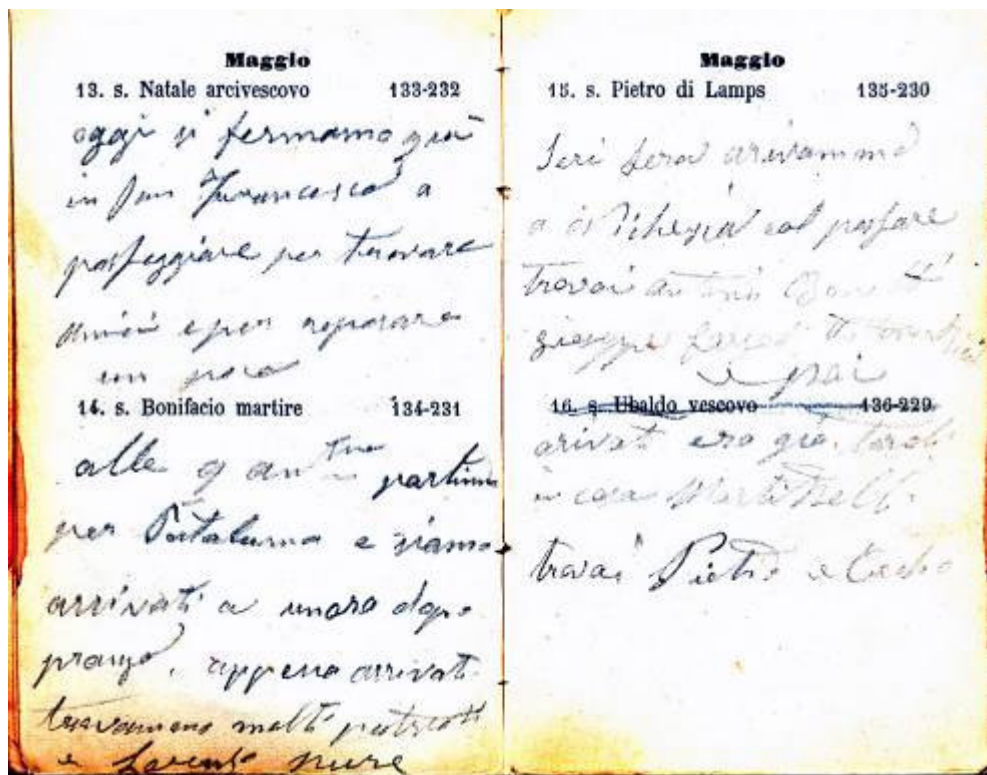 Maggio
13. s. Natale arcivescovo 133-232
oggi si fermamo quà
in San Francesco a
passeggiare per trovare
amici e per riposare
un poco
14. s. Bonifacio martire 134-231
alle 9 partimo
per Petaluma e siamo
arrivati a unora dopo
pranzo, appena arrivati
trovammo molti patriotti
e Lorenzo pure
Maggio
15. s. Pietro di Lamps 135-230
Ieri sera arivammo
a col passare
trovai
e poi
16. s. Ubaldo vescovo 136-229
arivati era già tardi
in casa Martinelli
trovai Pietro e